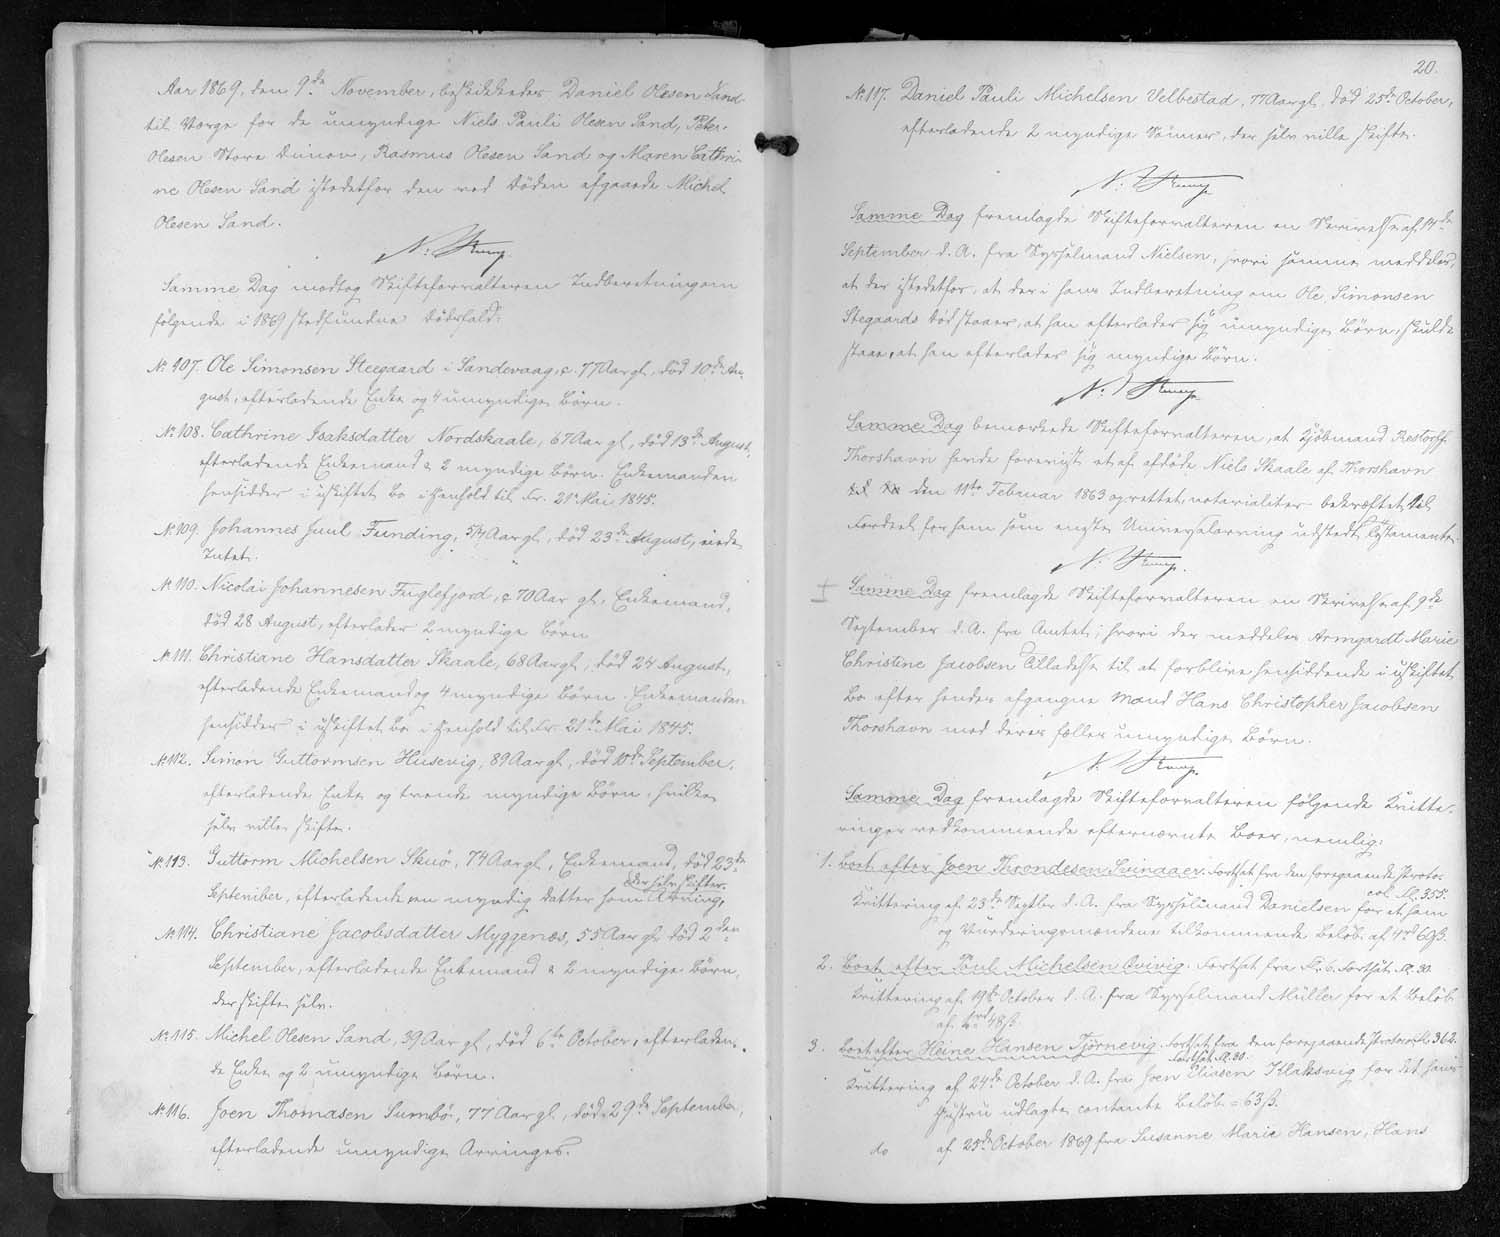 Aar 1869, den 9de November, beskikkedes Daniel Olesen Sand
til Værge for de umyndige Niels Pauli Olesen Sand, Peter
Olesen Store Dimon, Rasmus Olesen Sand og Maren Cathri-
ne Olesen Sand istedetfor den ved Døden afgaaede Michel
Olesen Sand.
Samme Dag modtog Skifteforvalteren Indberetning om
følgende i 1869 stedfundne Dødsfald:
No 107. Ole Simonsen Steegaard i Sandevaag, c. 77 Aar gl, død 10de Au-
gust, efterladende Enke og 4 umyndige Børn.
No 108. Cathrine Isaksdatter Nordskaale, 67 Aar gl, død 13de August,
efterladende Enkemand & 2 myndige Børn. Enkemanden
hensidder i uskiftet Bo i Henhold til Fr. 21 Mai 1845.
No 109. Johannes Juul Funding, 54 Aar gl, død 23de August, eiede
Intet.
No 110. Nicolai Johannesen Fuglefjord, c 70 Aar gl, Enkemand,
død 28 August, efterlader 2 myndige Børn
No 111. Christiane Hansdatter Skaale, 68 Aar gl, død 24 August,
efterladende Enkemand og 4 myndige Børn. Enkemanden
hensidder i uskiftet Bo i Henhold til Fr. 21de Mai 1845.
No 112. Simon Guttormsen Husevig, 89 Aar gl, død 10de September,
efterladende Enke og trende myndige Børn, hvilke
selv ville skifte.
No 113. Guttorm Michelsen Skuø, 74 Aar gl, Enkemand, død 23de
der selv skifter
September, efterladende en myndig datter som Arving,
No 114. Christiane Jacobsdatter Myggenæs, 55 Aar gl død 2den
September, efterladende Enkemand & 2 myndige Børn,
der skifte selv.
No 115. Michel Olesen Sand, 39 Aar gl, død 6te October, efterladen-
de Enke og 2 umyndige Børn.
No 116. Joen Thomasen Sumbø, 77 Aar gl, død 29de September,
efterladende umyndige Arvinger.
20.
No 117. Daniel Pauli Michelsen Velbestad, 77 Aar gl, død 25de October,
efterladende 2 myndige Sønner, der selv ville skifte.
Samme Dag fremlagde Skifteforvalteren en Skrivelse af 14de
September d. A. fra Sysselmand Nielsen, hvori samme meddeler,
at der istedetfor, at der i hans Indberetning om Ole Simonsen
Stegaards Død staaer, at han efterlader sig umyndige Børn, skulde
staae, at han efterlader sig myndige Børn.
Samme Dag bemærkede Skifteforvalteren, at Kjøbmand Restorff
Thorshavn havde foreviist et af afdøde Niels Skaale af Thorshavn
den 11te Februar 1863 oprettet notarialiter bekræftet til
Fordeel for ham som eneste Universalarving udstedt Testamente.
Samme Dag fremlagde Skifteforvalteren en Skrivelse af 9de
September d. A. fra Amtet, hvori der meddeles Armgardt Marie
Christine Jacobsen Tilladelse til at forblive hensiddende i uskiftet
Bo efter hendes afgangne Mand Hans Christopher Jacobsen
Thorshavn med deres fælles umyndige Børn.
Samme Dag fremlagde Skifteforvalteren følgende Kvitte-
ringer vedkommende efternævnte Boer, nemlig:
1. Boet efter Joen Throndesen Svinaaer. Fortsat fra den foregaaende Proto-
col Fl. 355.
Kvittering af 23de Septbr d. A. fra Sysselmand Danielsen for et ham
og Vurderingsmændene tilkommende Beløb af 4rd 60ß.
2. Boet efter Poul Michelsen Qvivig. Fortsat fra Fl. 6. Fortsat Fl. 30
Kvittering af 19de October d. A. fra Sysselmand Müller for et Beløb
48ß.
3. Boet efter Heine Hansen Tjørnevig fortsat fra den foregaaende Protocol Fl. 362.
Fortsat Fl. 30.
Kvittering af 24de October d. A. fra Joen Eliasen Klaksvig for det hans
Hustru udlagte contante Beløb = 63ß.
do af 25de October 1869 fra Susanne Marie Hansen, Hans